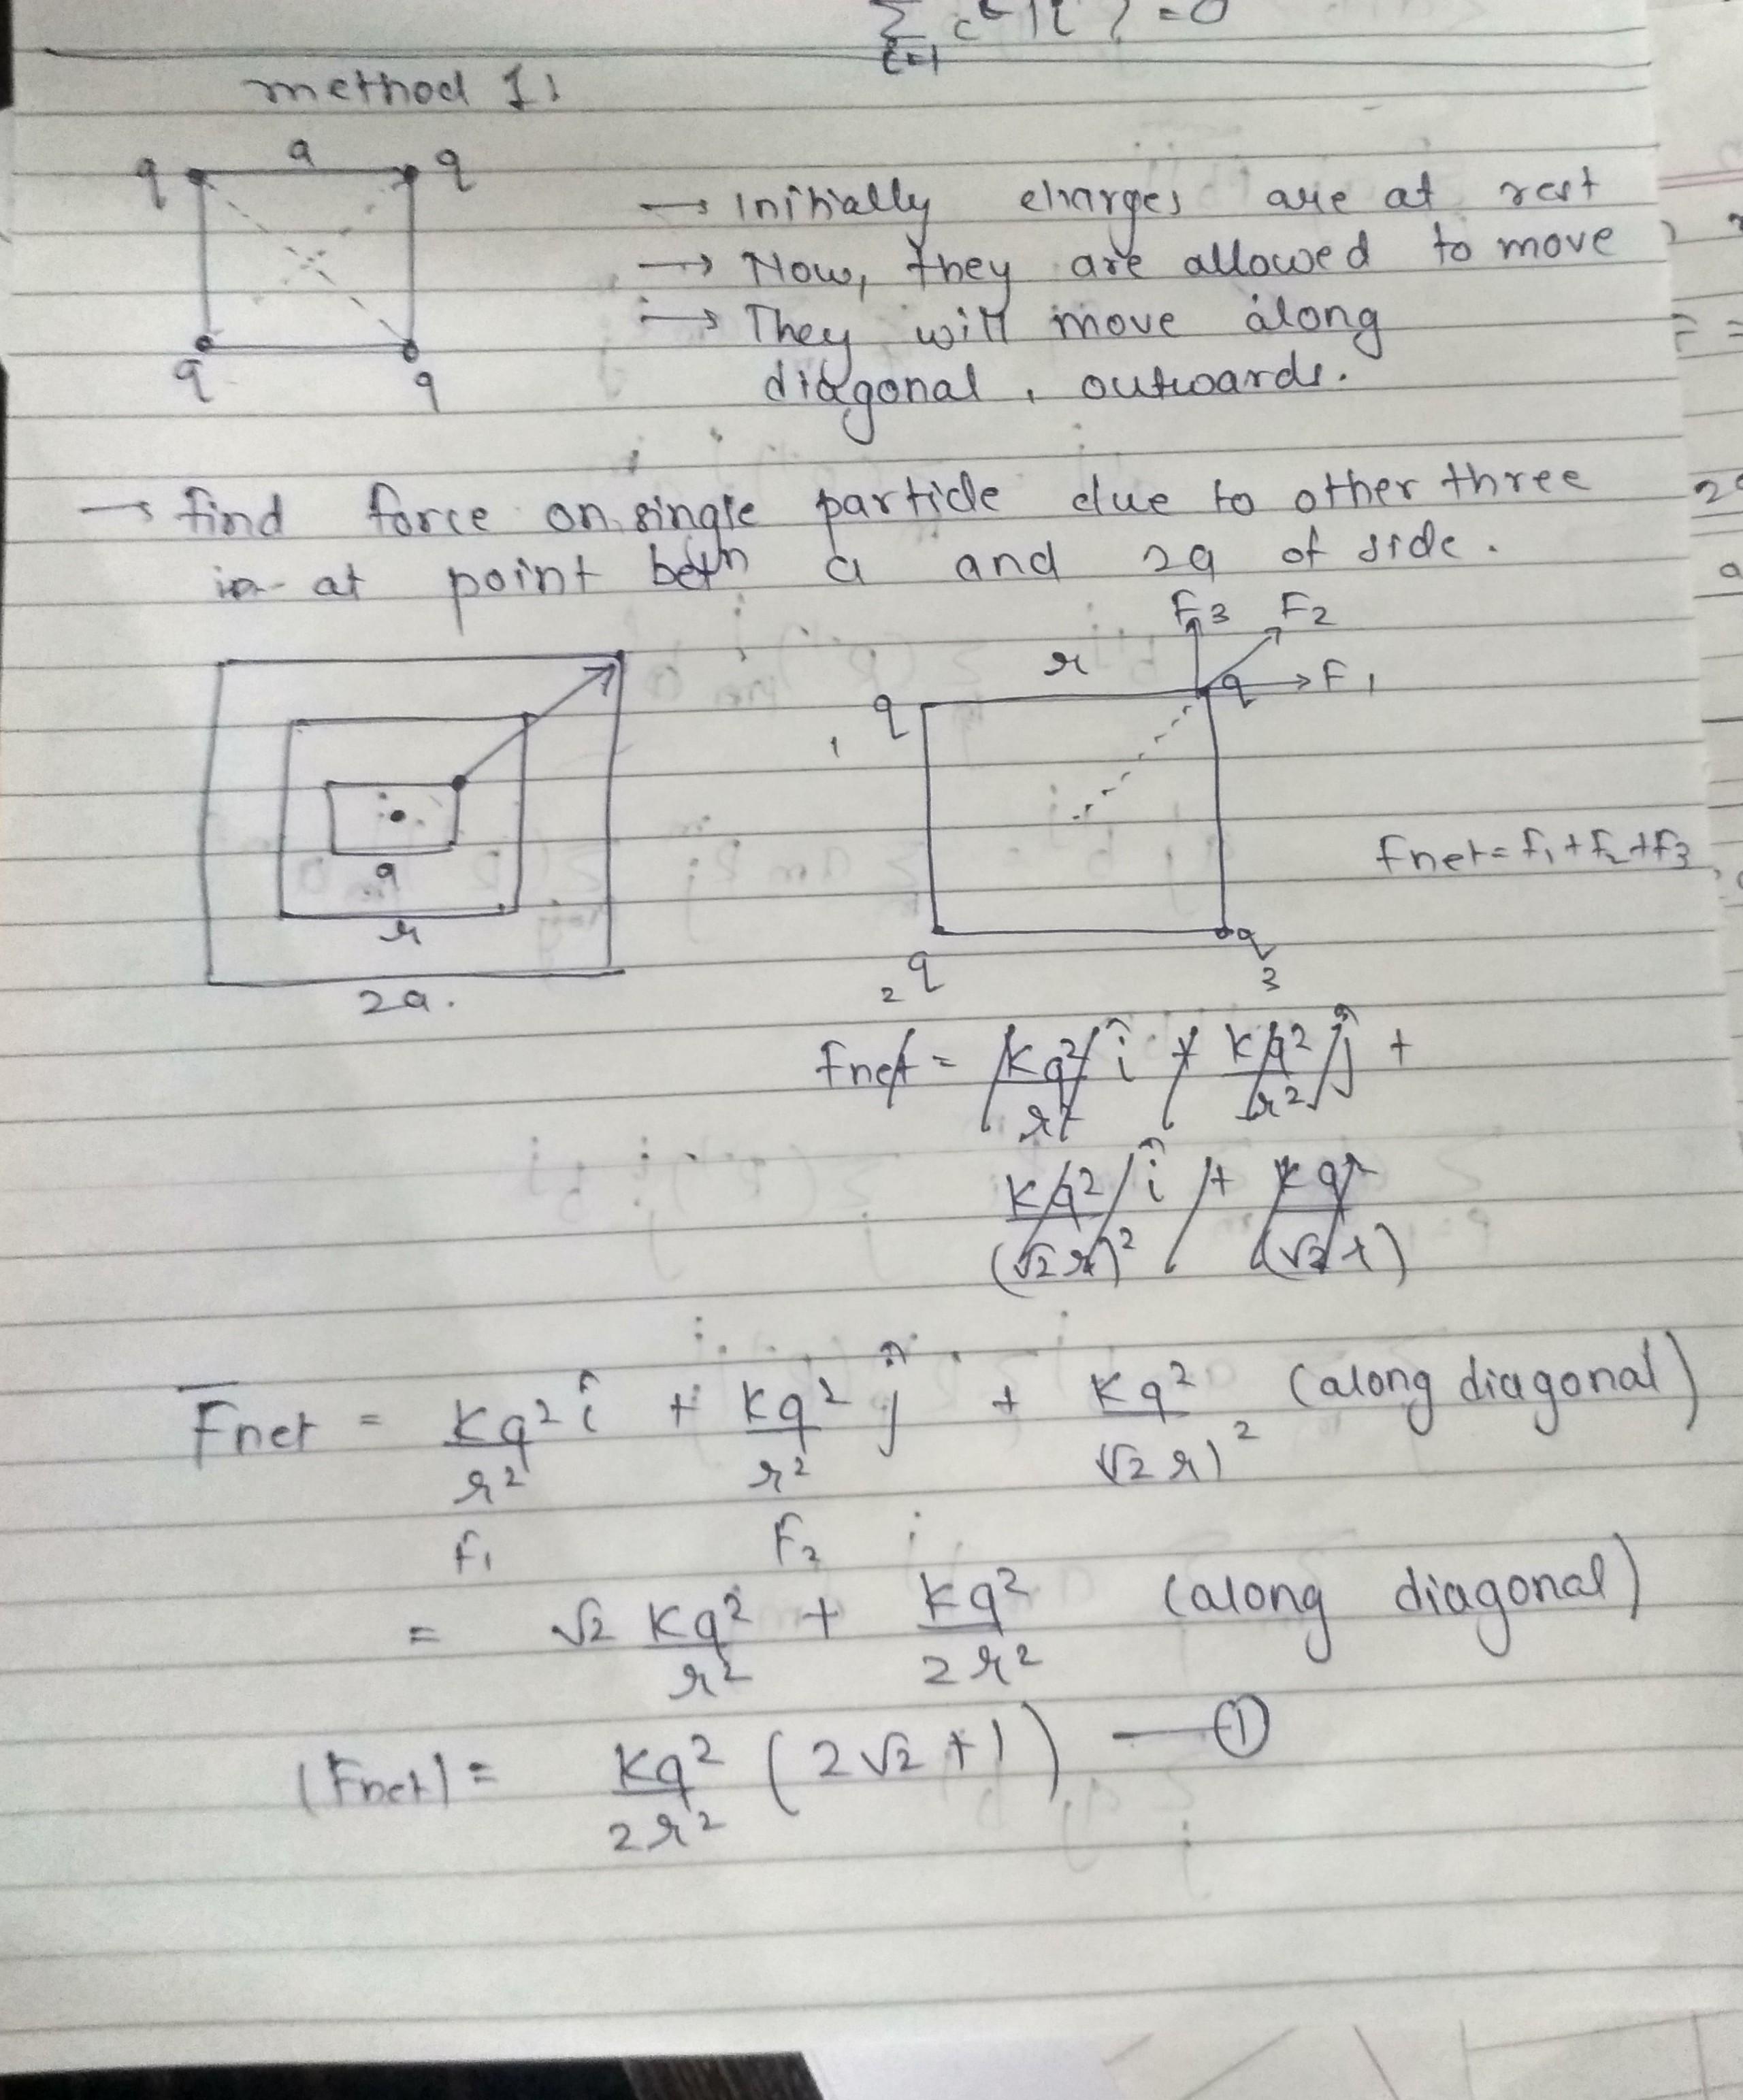 method 1:
q a q
q q
→ Initially charges are at rest
→ Now, they are allowed to move
→ They will move along
diagonal, outwards.
→ find force on single particle due to other three
in at point betn a and 2a of side.
F3 F2
r
q q F1
1
a
Fnet = F1 + F2 + F3
r
2 q q
3
2a.
Fnet = Kq²/r² î + Kq²/r² ĵ +
Kq²/(√2 r)² î + Kq²/(√2 r)
Fnet = Kq²/r² î + Kq²/r² ĵ + Kq²/√2 r)² (along diagonal)
F1 F2
= √2 Kq²/r² + Kq²/2r² (along diagonal)
|Fnet| = Kq²/2r² (2√2 + 1) — ①